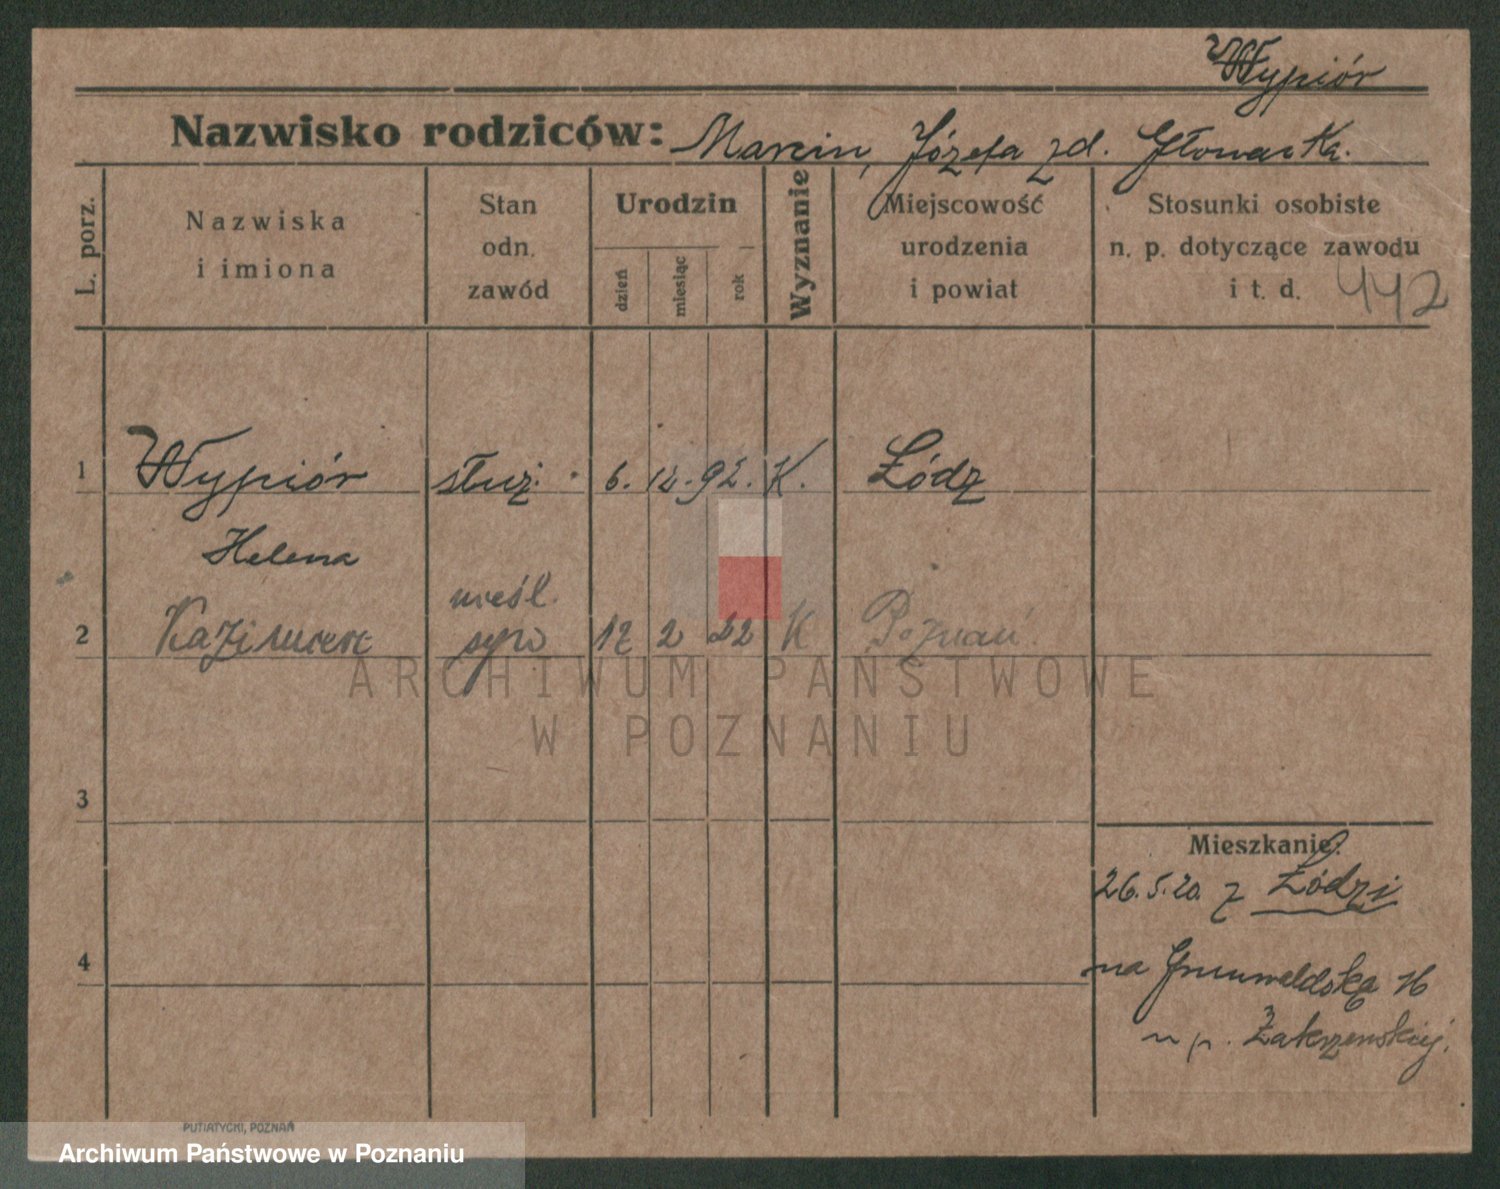 Wypiór
Nazwisko rodziców: Marcin, Józefa zd. Głowacka.
L. porz.
Nazwiska
i imiona
Stan
odn.
zawód
Urodzin
dzień
miesiąc
rok
Wyznanie
Miejscowość
urodzenia
i powiat
Stosunki osobiste
n. p. dotyczące zawodu
i t. d.
442
1 Wypiór służ. 6. 12. 92. K. Łódz
Helena
nieśl.
2 Kazimierz syn 12 2 22 K Poznań
ARCHIWUM PAŃSTWOWE
W POZNANIU
3
Mieszkanie:
26.5.20. z Łódzi
4
na Grunwaldską 16
u p. Zakrzewskiej.
PUTIATYCKI, POZNAŃ
Archiwum Państwowe w Poznaniu